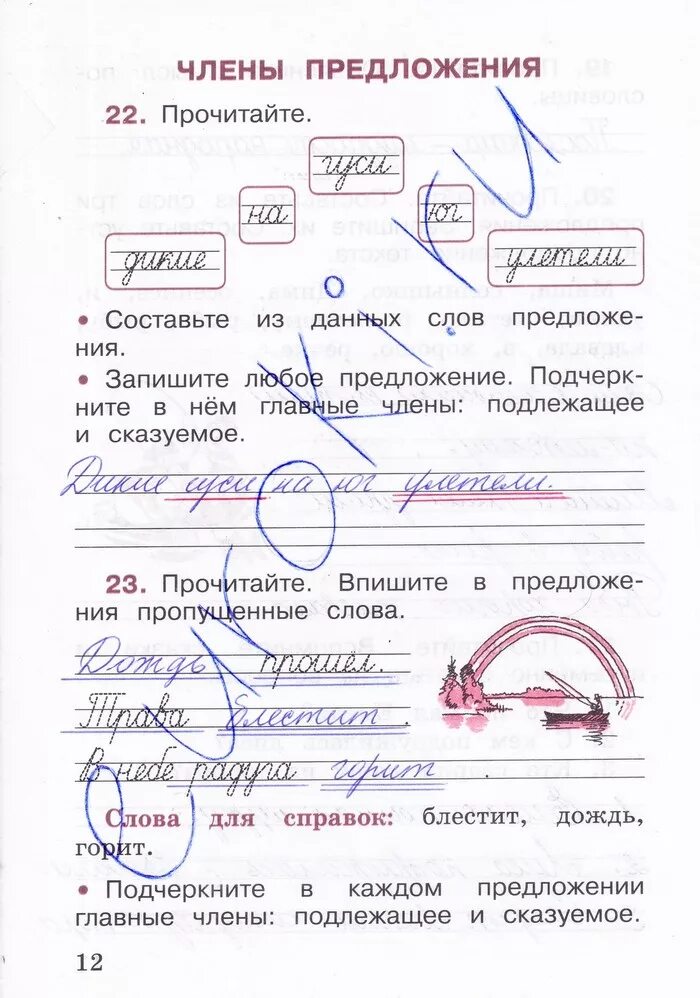 ЧЛЕНЫ ПРЕДЛОЖЕНИЯ
22. Прочитайте.
гуси
на
юг
дикие
улетели
• Составьте из данных слов предложе-
ния.
• Запишите любое предложение. Подчерк-
ните в нём главные члены: подлежащее
и сказуемое.
Дикие гуси на юг улетели.
23. Прочитайте. Впишите в предложе-
ния пропущенные слова.
Дождь прошёл.
Трава блестит
В небе радуга горит.
Слова для справок: блестит, дождь,
горит.
• Подчеркните в каждом предложении
главные члены: подлежащее и сказуемое.
12